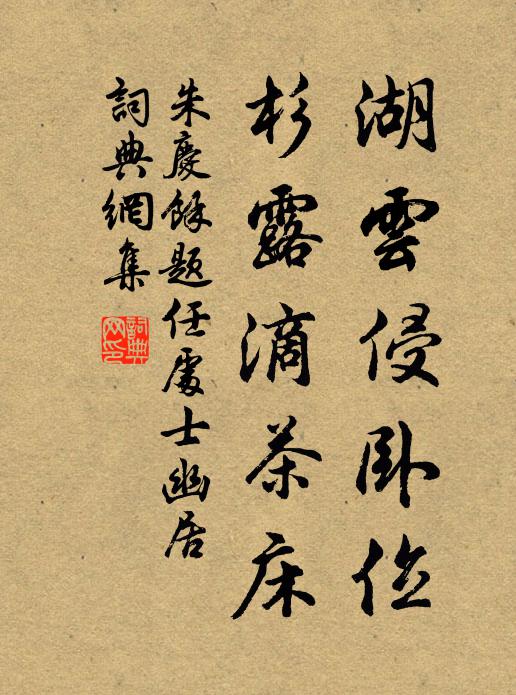 湖雲侵卧位
杉露滴茶床
朱慶餘題任處士幽居
詞典網集
詞典网印